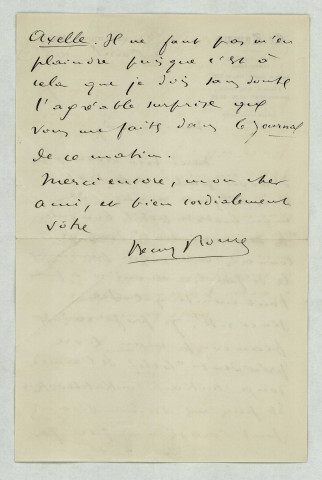 Axelle. Il ne faut pas m'en
plaindre puisque c'est à
cela que je dois sans doute
l'agréable surprise que
vous me faites dans le Journal
de ce matin.
Merci encore, mon cher
ami, et bien cordialement
vôtre